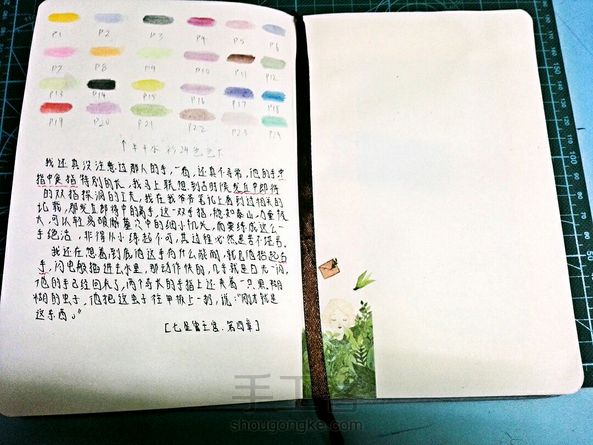 P1 P2 P3 P4 P5 P6
P7 P8 P9 P10 P11 P12
P13 P14 P15 P16 P17 P18
P19 P20 P21 P22 P23 P24
24色色卡
我还真没注意过那人的手,一看,还真不寻常,他的手中
指中食指特别的长,我马上联想到古时候发丘中郎将
的双指探洞的工夫,我在我爷爷笔记上看到过相关的
记载,那发丘郎将中的高手,这一双手指,稳如泰山,力量极
大,可以轻易破解墓穴中的细小机关,而要练成这么一
手绝活,非得从小练起不可,其过程必然是苦不堪言。
我还在想着,到底他这手有什么能耐,就看他抬起右
手,闪电般插进去水里,那动作快的,几乎就是白光一闪,
他的手已经出来了,两个奇长的手指上还夹着一只黑糊
糊的虫子,他把这虫子往甲板上一扔,说:"刚才就是
这东西。"
[七星鲁王宫·第四章]
手工客
shougongke.com